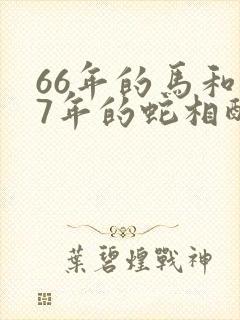 66年的馬和
7年的蛇相
葉碧煌戰神